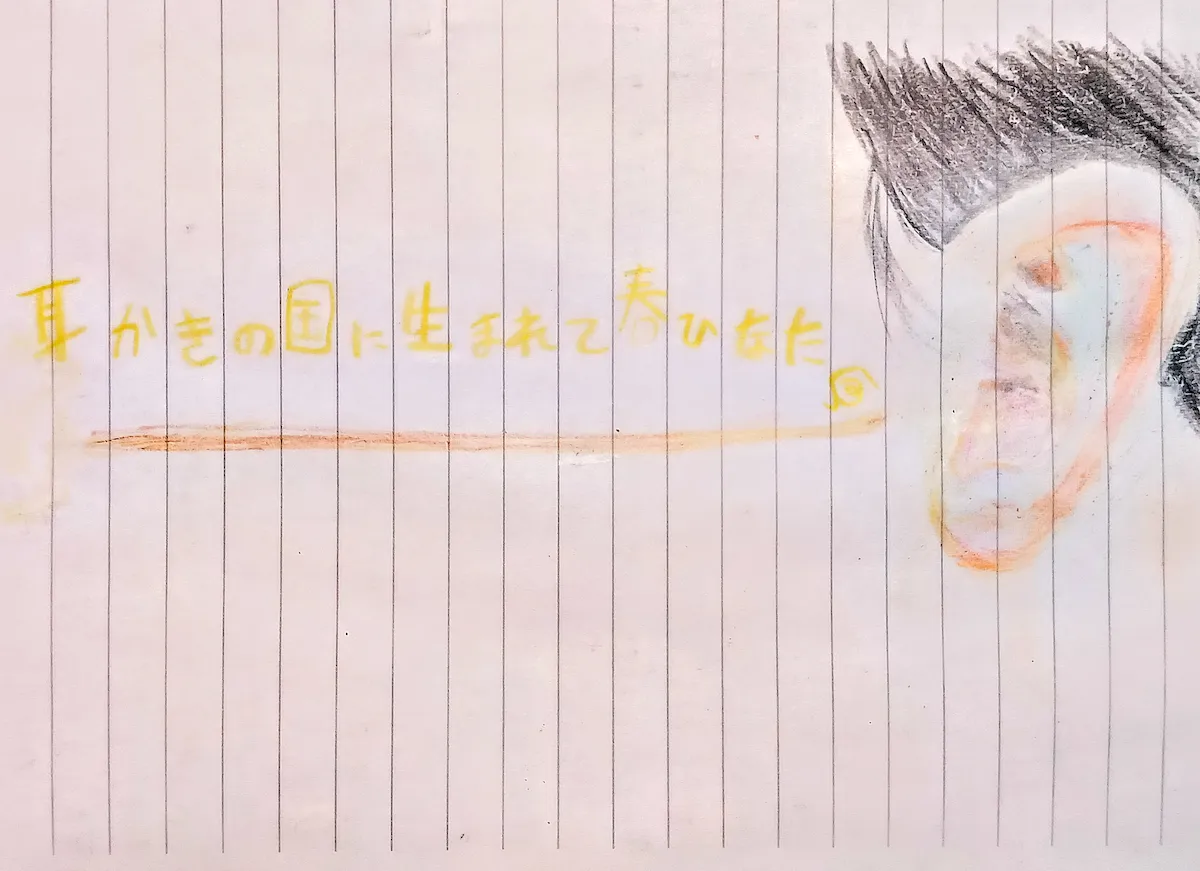 耳かきの国に生まれて春ひなた